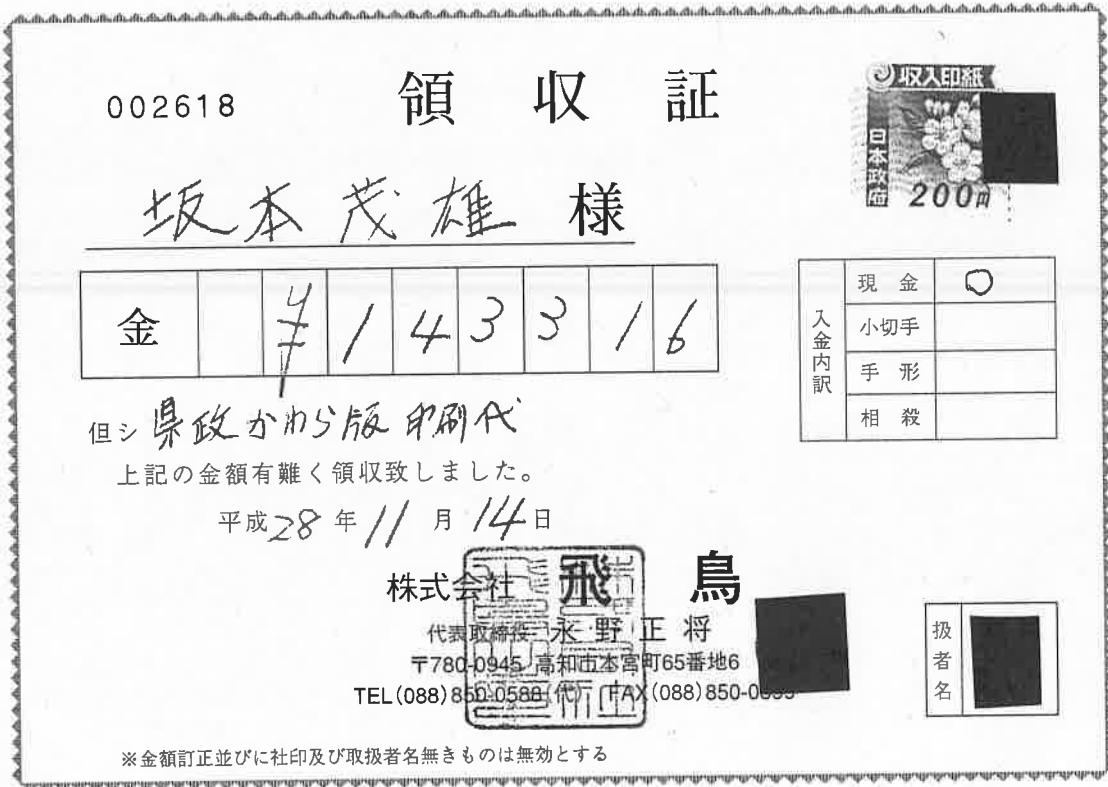 002618
領収証
収入印紙
日本政府
200円
坂本茂雄 様
金 ¥143316
入金内訳
現金 ○
小切手
手形
相殺
但シ 県政かわら版 印刷代
上記の金額有難く領収致しました。
平成28年11月14日
株式会社 飛鳥
代表取締役 永野正将
〒780-0945 高知市本宮町65番地6
TEL(088)850-0588(代) FAX(088)850-0
扱者名
※金額訂正並びに社印及び取扱者名無きものは無効とする